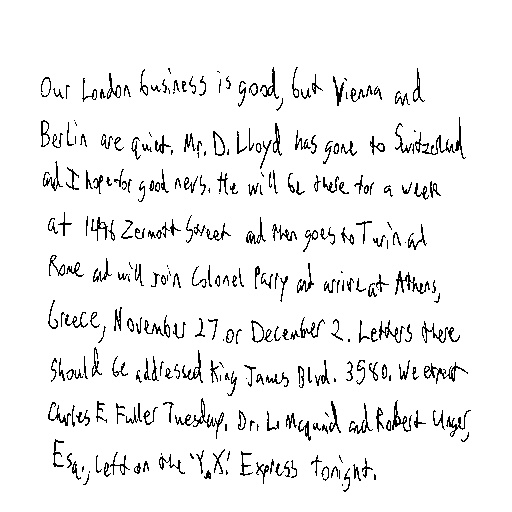 Our London business is good, but Vienna and
Berlin are quiet. Mr. D. Lloyd has gone to Switzerland
and I hope for good news. He will be there for a week
at 1496 Zermott Street and then goes to Turin and
Rome and will join Colonel Parry and arrive at Athens,
Greece, November 27 or December 2. Letters there
should be addressed King James Blvd. 3580. We expect
Charles E. Fuller Tuesday. Dr. L. McQuaid and Robert Unger,
Esq., left on the 'Y.X.' Express tonight.